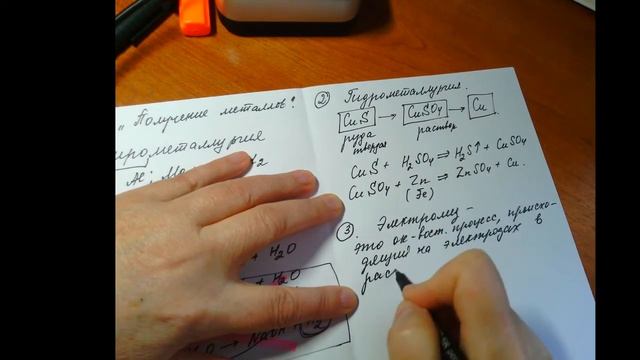 „Получение металлов".
Пирометаллургия
H₂O
+ H₂O
② Гидрометаллургия.
CuS → CuSO₄ → Cu
руда раствор
твердая
CuS + H₂SO₄ ⇒ H₂S↑ + CuSO₄
CuSO₄ + Zn ⇒ ZnSO₄ + Cu.
(Fe)
③. Электролиз –
это ок-вост. процесс, происхо-
дящий на электродах в
рас